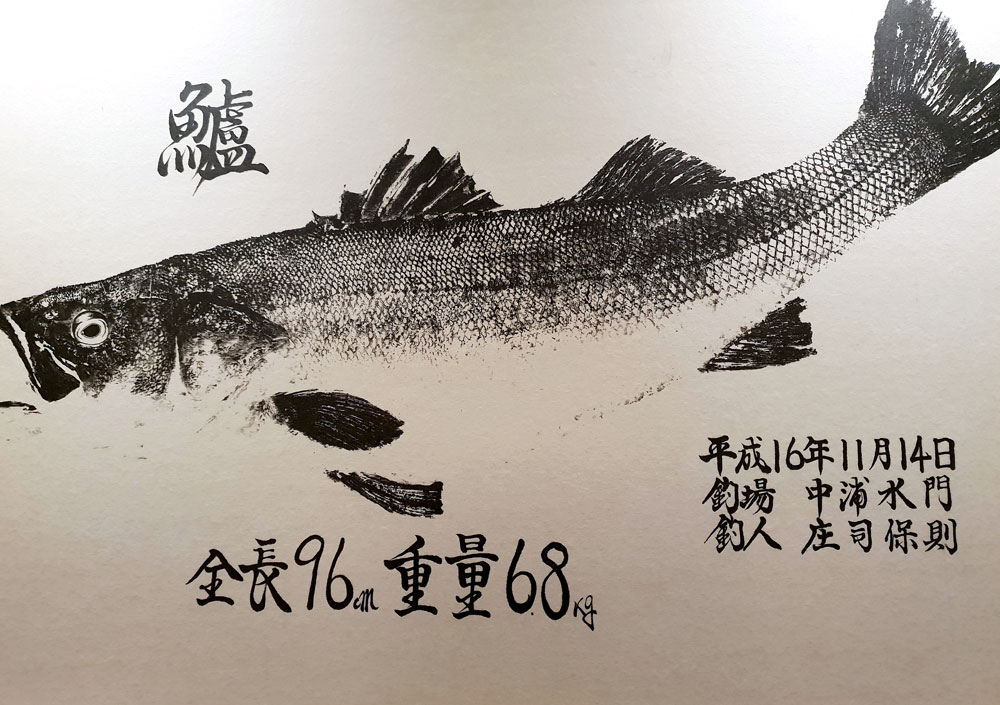 鱸
全長96cm 重量6.8kg
平成16年11月14日
釣場 中浦水門
釣人 庄司保則